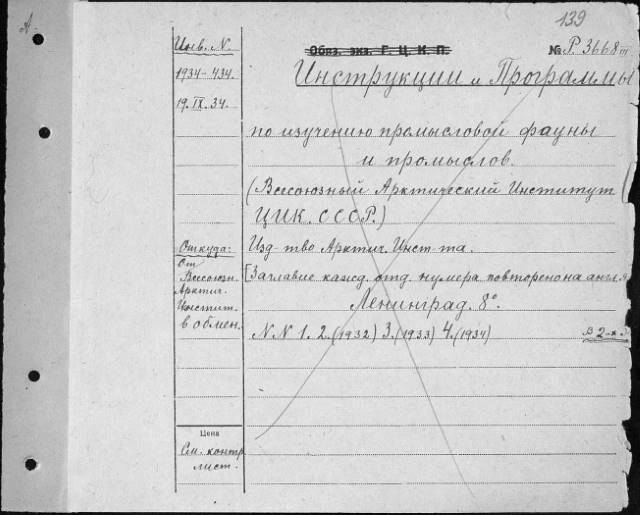 139
Инв. N.
Обяз. экз. Г. Ц. К. П.
№ Р. 3668 III
1934-434.
Инструкции и Программы
19.IX.34.
по изучению промысловой фауны
и промыслов.
(Всесоюзный Арктический Институт
ЦИК. СССР.)
Откуда:
Изд-тво Арктич. Инст-та.
От
Всесоюзн.
Арктич.
Инстит.
в обмен.
[Заглавие кажд. отд. нумера повторено на англ.
Ленинград. 8°.
NN 1. 2. (1932) 3. (1933) 4. (1934)
В 2-х
Цена
См. контр.
лист.